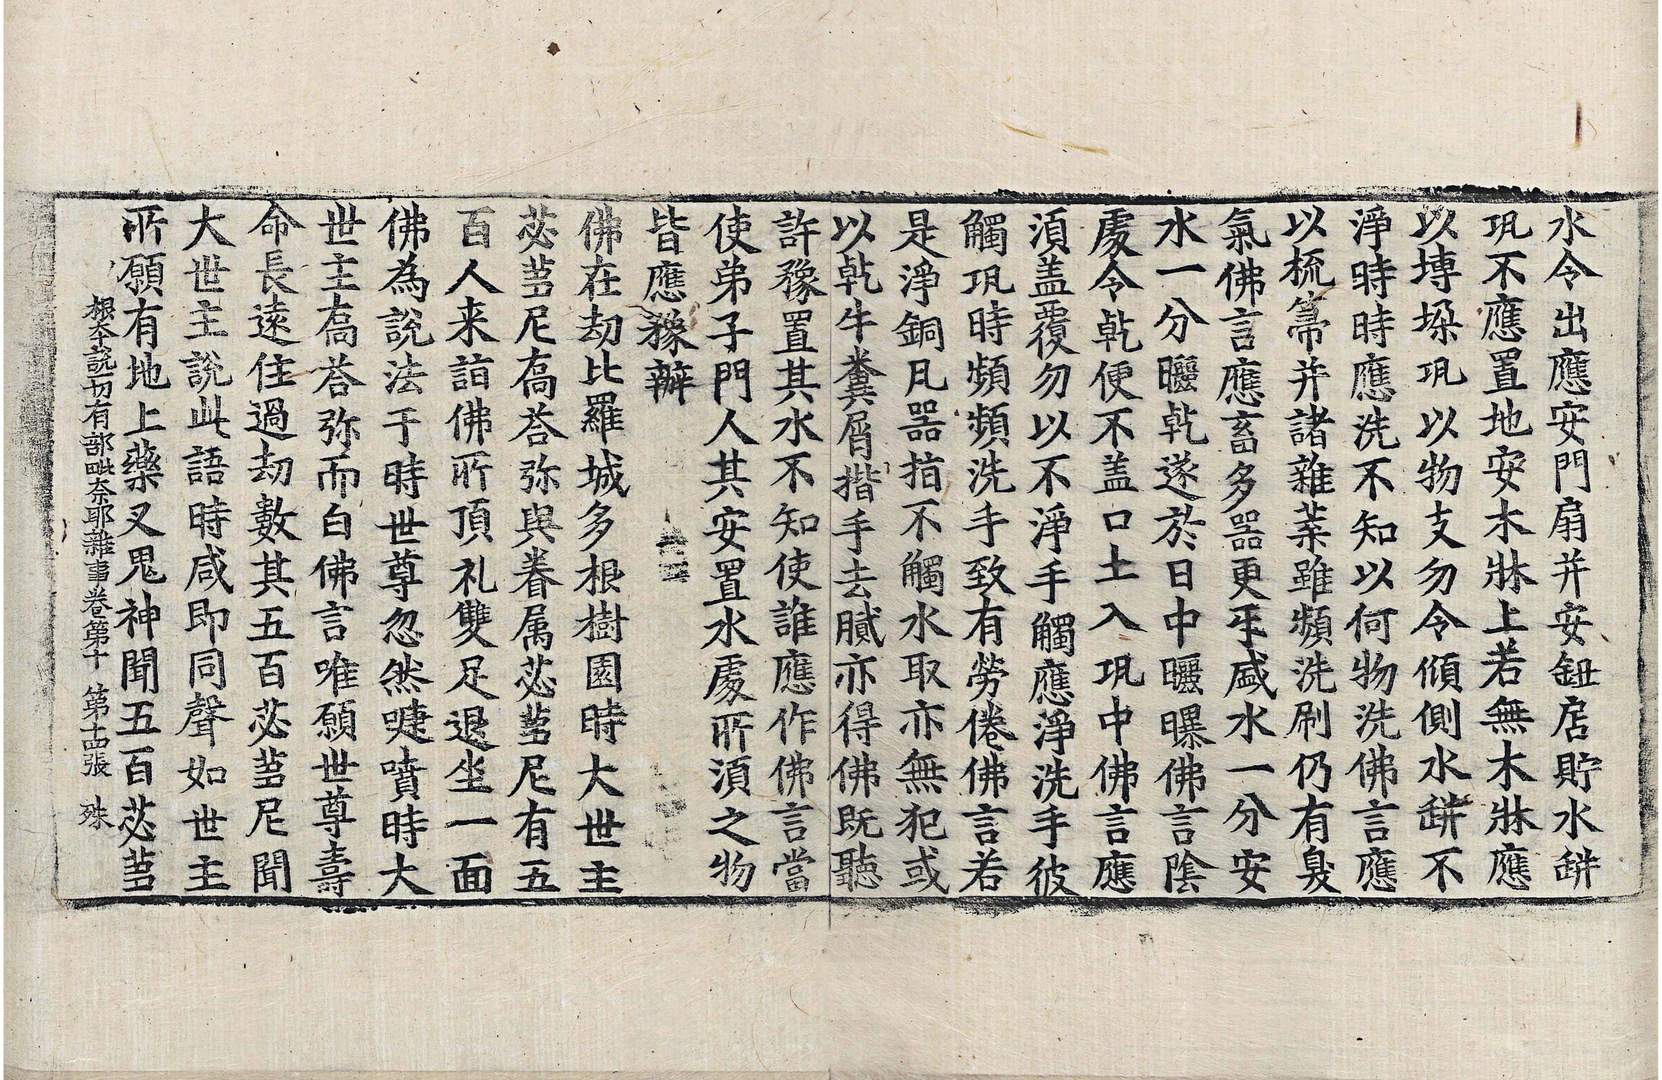 水令出應安門扇并安鈕店貯水缾
瓨不應置地安木牀上若無木牀應
以塼垛瓨以物支勿令傾側水缾不
淨時時應洗不知以何物洗佛言應
以梳箒并諸雜葉雖頻洗刷仍有臭
氣佛言應畜多器更㸦盛水一分安
水一分曬乹遂於日中曬曝佛言陰
處令乹便不盖口土入瓨中佛言應
湏盖覆勿以不淨手觸應淨洗手彼
觸瓨時頻頻洗手致有勞倦佛言若
是淨銅凡器指不觸水取亦無犯或
以乹牛糞屑揩手去膩亦得佛既聽
許豫置其水不知使誰應作佛言當
使弟子門人其安置水處所湏之物
皆應豫辦
佛在劫比羅城多根樹園時大世主
苾蒭尼喬荅弥與眷属苾蒭尼有五
百人来詣佛所頂礼雙足退坐一面
佛為說法于時世尊忽然嚏噴時大
世主喬荅弥而白佛言唯願世尊壽
命長遠住過劫數其五百苾蒭尼聞
大世主說此語時咸即同聲如世主
所願有地上藥叉鬼神聞五百苾蒭
根本說一切有部毗奈耶雜事卷第十　第十四張　殊